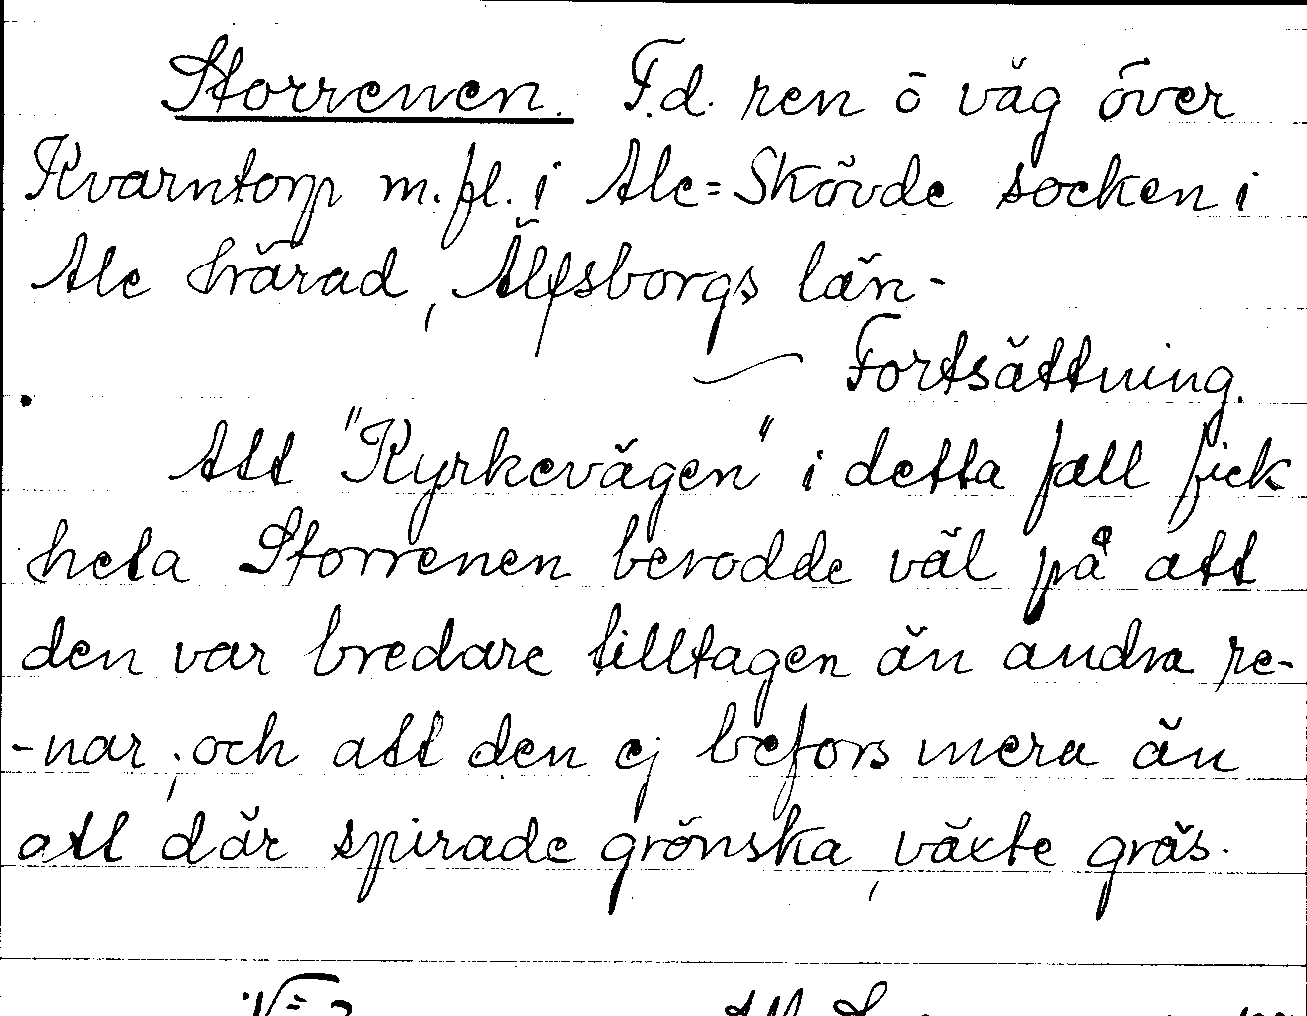 Storrenen. F.d. ren o väg över
Kvarntorp m.fl. i Ale=Skövde socken i
Ale härad, Älfsborgs län-
Fortsättning.
Att "Kyrkevägen" i detta fall fick
heta Storrenen berodde väl på att
den var bredare tilltagen än andra re-
-nar, och att den ej befors mera än
att där spirade grönska, växte gräs.